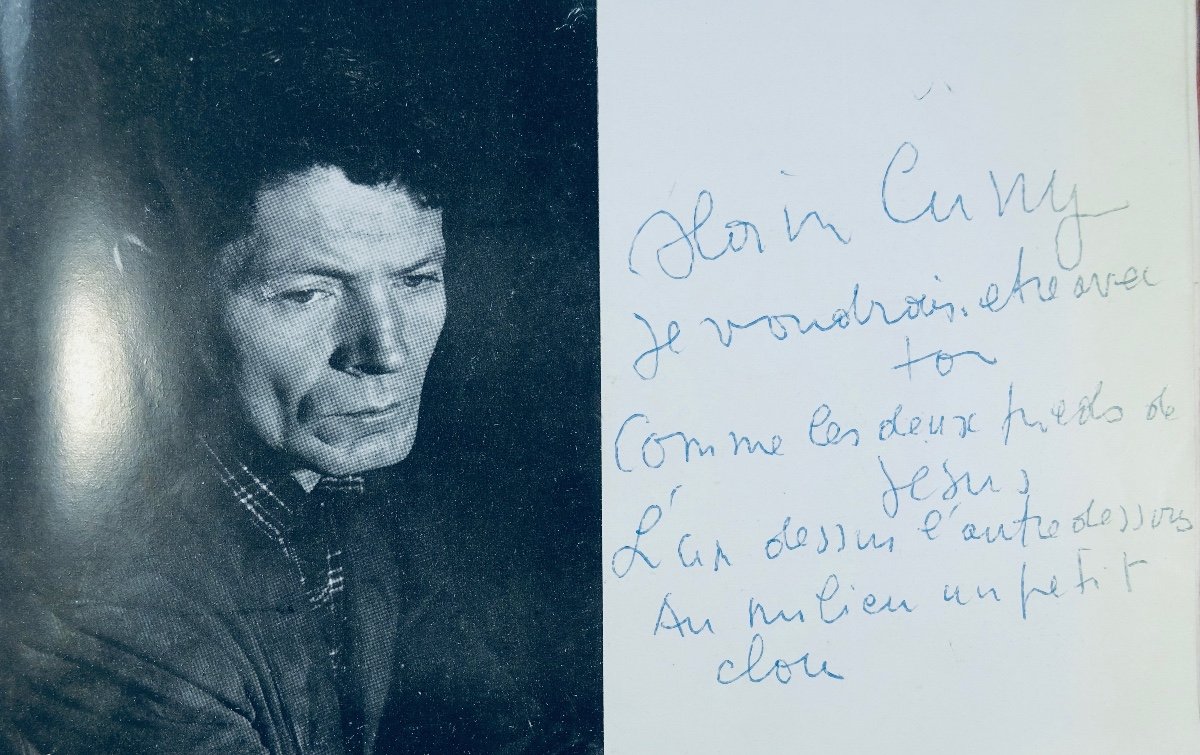 Alain Cuny
Je voudrais être avec
toi
Comme les deux pieds de
Jésus
L'un dessus l'autre dessous
Au milieu un petit
clou